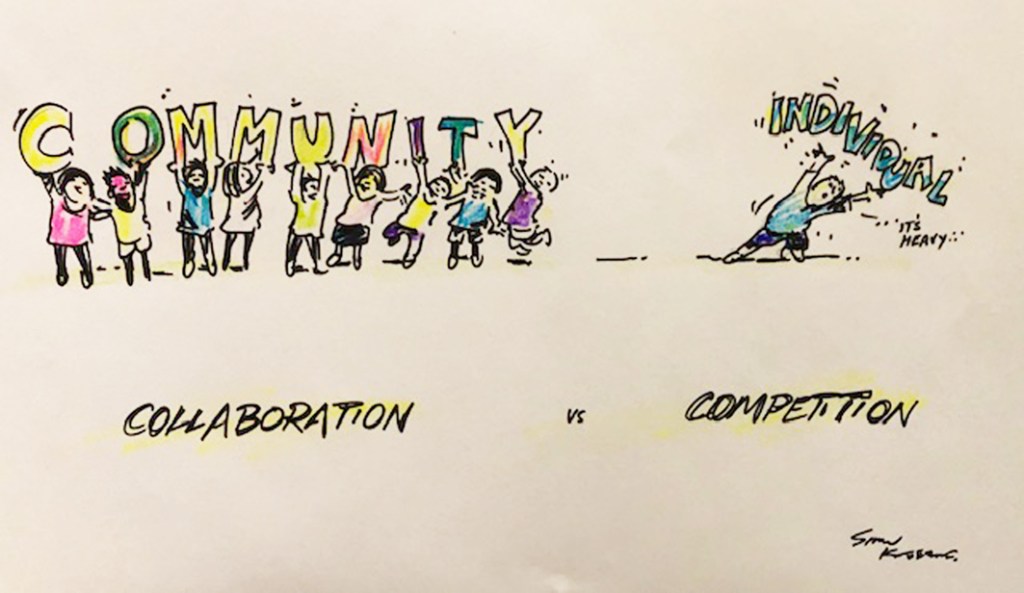 COMMUNITY
INDIVIDUAL
"IT'S
HEAVY...
COLLABORATION vs COMPETITION